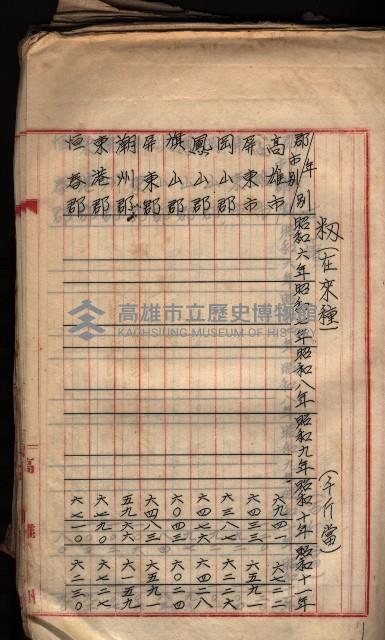 籾(在來種) (千斤當)
郡市別/年別 昭和六年 昭和七年 昭和八年 昭和九年 昭和十年 昭和十一年
高雄市 六九四一 六七二二
屏東市 六四三一 六五九一
岡山郡 六三八七 六二二六
鳳山郡 六四七六 六四二八
旗山郡 六〇四三 六〇二四
屏東郡 六四八三 六五九一
潮州郡 五九六六 六一五九
東港郡 六七九〇 六二二七
恒春郡 六七一〇 六二三〇
高雄市立歷史博物館
KAOHSIUNG MUSEUM OF HISTORY
高雄州